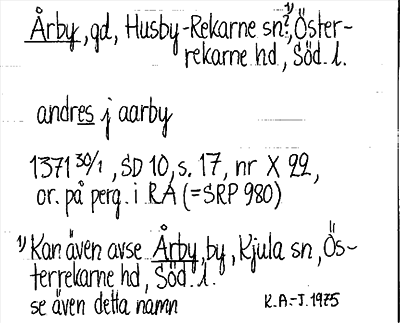 Årby, gd, Husby-Rekarne sn?, 1) Öster-
rekarne hd, Söd. l.
andres j aarby
1371 30/1, SD 10, s. 17, nr X 22,
or. på perg. i RA (=SRP 980)
1) Kan även avse Årby, by, Kjula sn, Ös-
terrekarne hd, Söd. l.
se även detta namn
K.A.-J. 1975